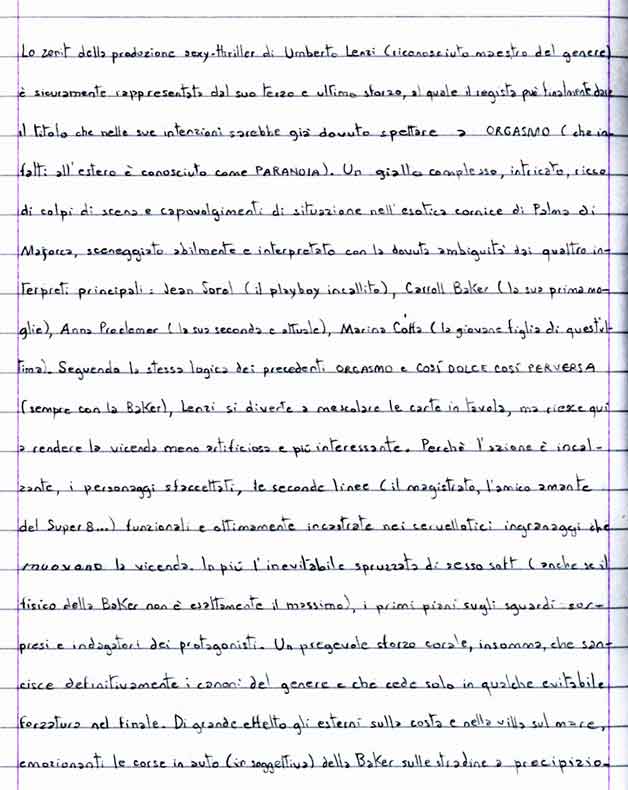 Lo zenit della produzione sexy-thriller di Umberto Lenzi (riconosciuto maestro del genere)
è sicuramente rappresentato dal suo terzo e ultimo sforzo, al quale il regista può finalmente dare
il titolo che nelle sue intenzioni sarebbe già dovuto spettare a ORGASMO (che in-
fatti all'estero è conosciuto come PARANOIA). Un giallo complesso, intricato, ricco
di colpi di scena e capovolgimenti di situazione nell'esotica cornice di Palma di
Majorca, sceneggiato abilmente e interpretato con la dovuta ambiguità dai quattro in-
terpreti principali: Jean Sorel (il playboy incallito), Carroll Baker (la sua prima mo-
glie), Anna Proclemer (la sua seconda e attuale), Marina Coffa (la giovane figlia di quest'ul-
tima). Seguendo la stessa logica dei precedenti ORGASMO e COSÍ DOLCE COSÍ PERVERSA
(sempre con la Baker), Lenzi si diverte a mescolare le carte in tavola, ma riesce qui
a rendere la vicenda meno artificiosa e più interessante. Perchè l'azione è incal-
zante, i personaggi sfaccettati, le seconde linee (il magistrato, l'amico amante
del Super8...) funzionali e ottimamente incastrate nei cervellotici ingranaggi che
muovano la vicenda. In più l'inevitabile spruzzata di sesso soft (anche se il
fisico della Baker non è esattamente il massimo), i primi piani sugli sguardi sor-
presi e indagatori dei protagonisti. Un pregevole sforzo corale, insomma, che san-
cisce definitivamente i canoni del genere e che cede solo in qualche evitabile
forzatura nel finale. Di grande effetto gli esterni sulla costa e nella villa sul mare,
emozionanti le corse in auto (in soggettiva) della Baker sulle stradine a precipizio.